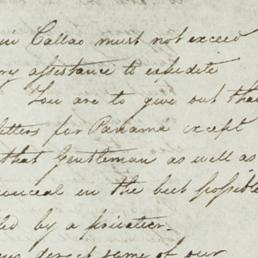 Callao must not exceed
assistance to expedite
You are to give out that
letters for Panama except
that Gentleman as well as
conceal in the best possible
by a privatier.
some of our